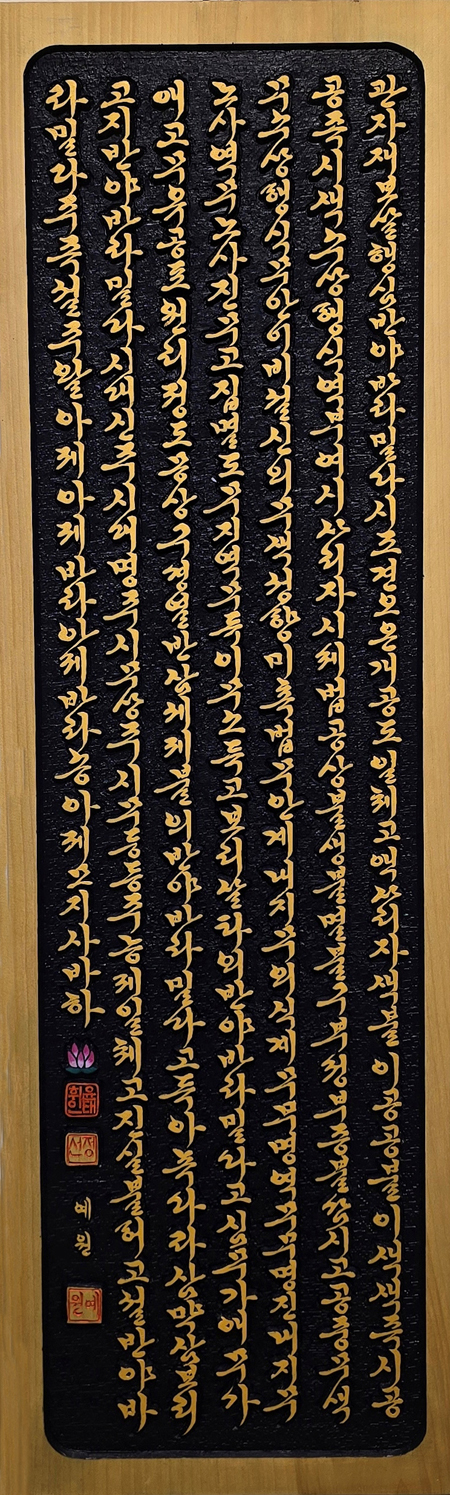 관자재보살행심반야바라밀다시조견오온개공도일체고액사리자색불이공공불이색색즉시공
공즉시색수상행식역부여시사리자시제법공상불생불멸불구부정부증불감시고공중무색
무수상행식무안이비설신의무색성향미촉법무안계내지무의식계무무명역무무명진내지무
노사역무노사진무고집멸도무지역무득이무소득고보리살타의반야바라밀다고심무가애무가
애고무유공포원리전도몽상구경열반삼세제불의반야바라밀다고득아뇩다라삼먁삼보리
고지반야바라밀다시대신주시대명주시무상주시무등등주능제일체고진실불허고설반야바
라밀다주즉설주왈아제아제바라아제바라승아제모지사바하
정선
예월
예월